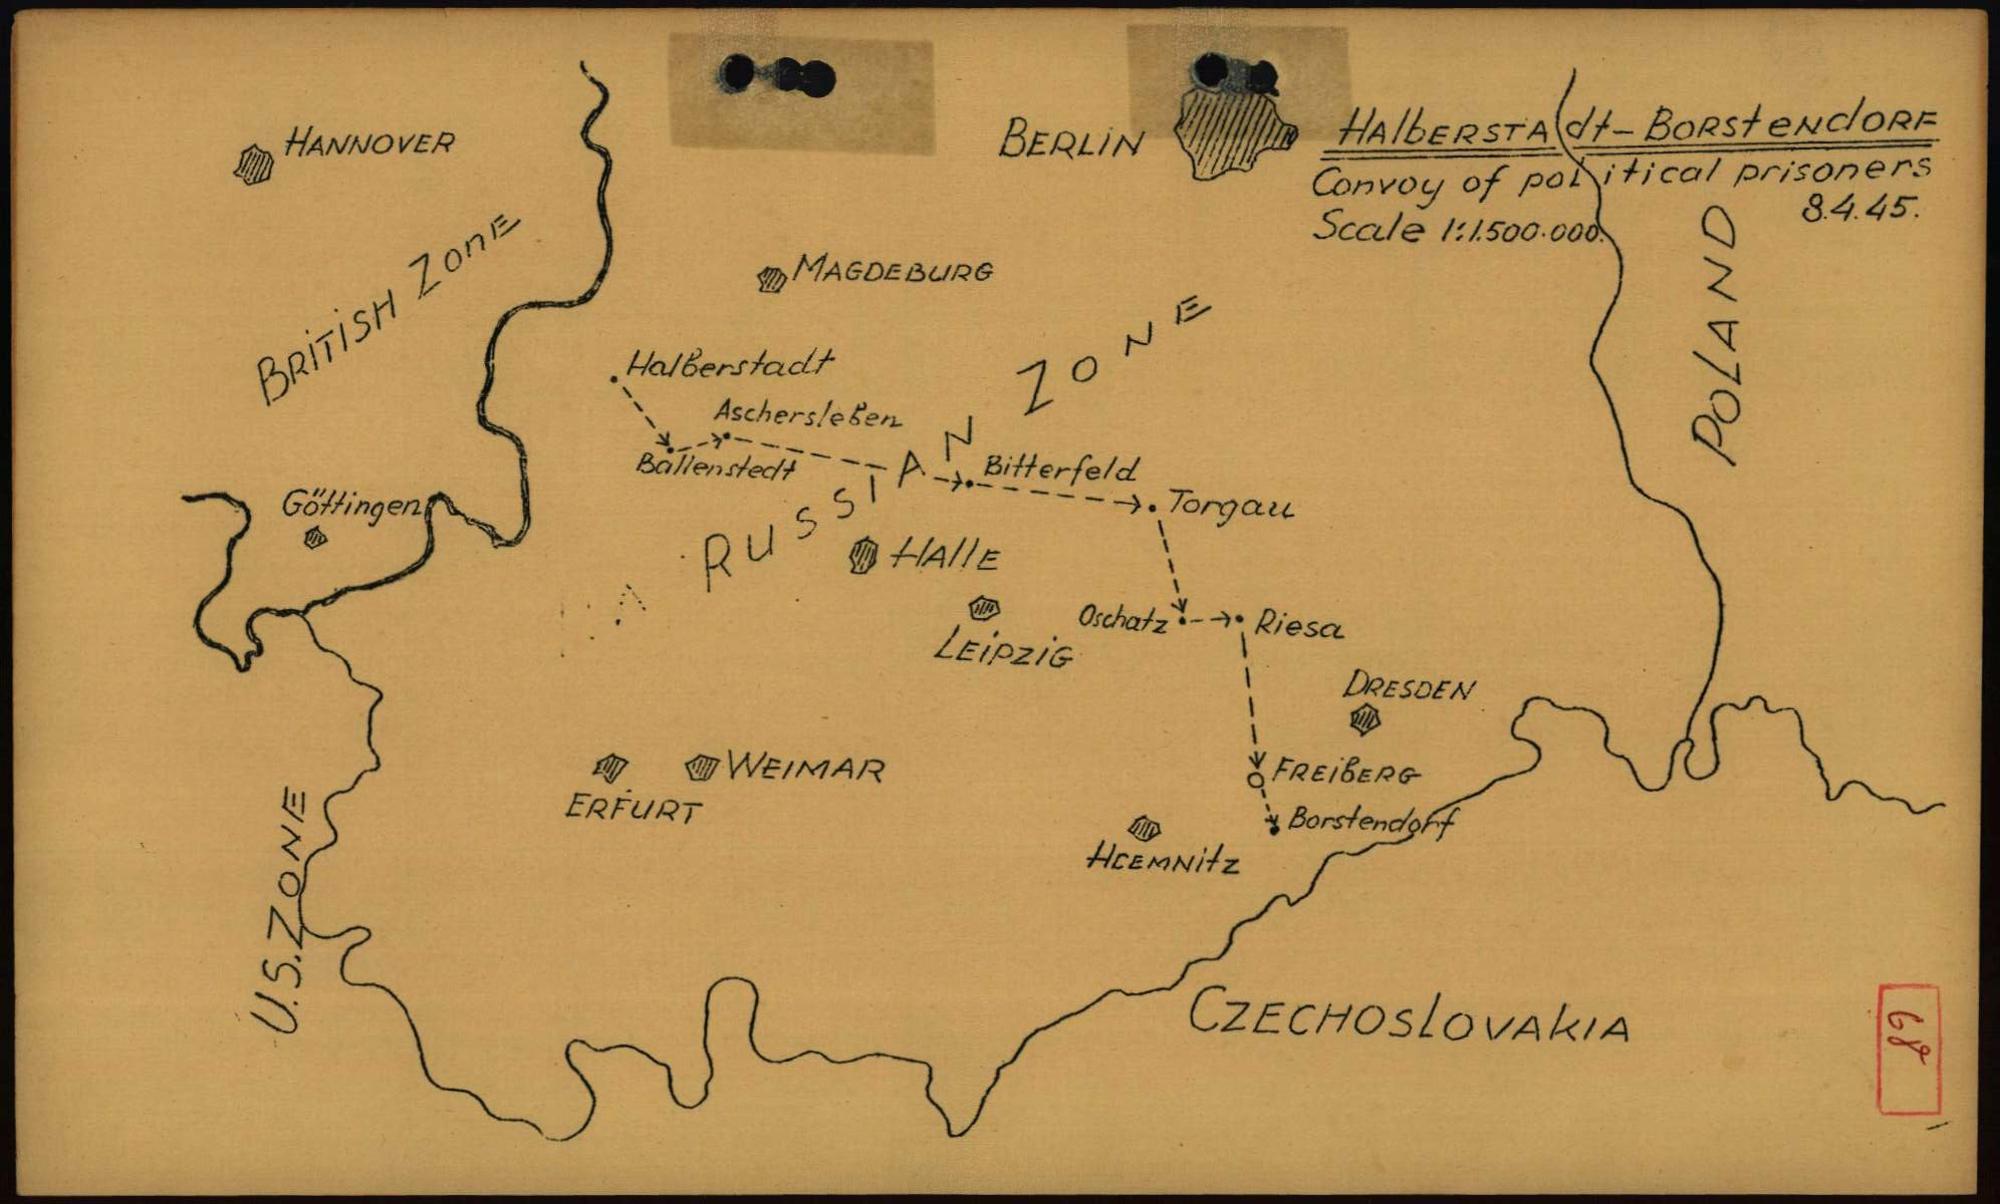 HANNOVER
BERLIN
HALBERSTAdt-BORSTENdORF
Convoy of political prisoners
8.4.45.
Scale 1:1.500.000.
BRITISH ZONE
MAGDEBURG
POLAND
RUSSIAN ZONE
Halberstadt
Aschersleben
Ballenstedt
Bitterfeld
Torgau
Göttingen
HALLE
LEIPZIG
Oschatz
Riesa
DRESDEN
ERFURT
WEIMAR
FREIBERG
Borstendorf
HCEMNITZ
U.S. ZONE
CZECHOSLOVAKIA
68